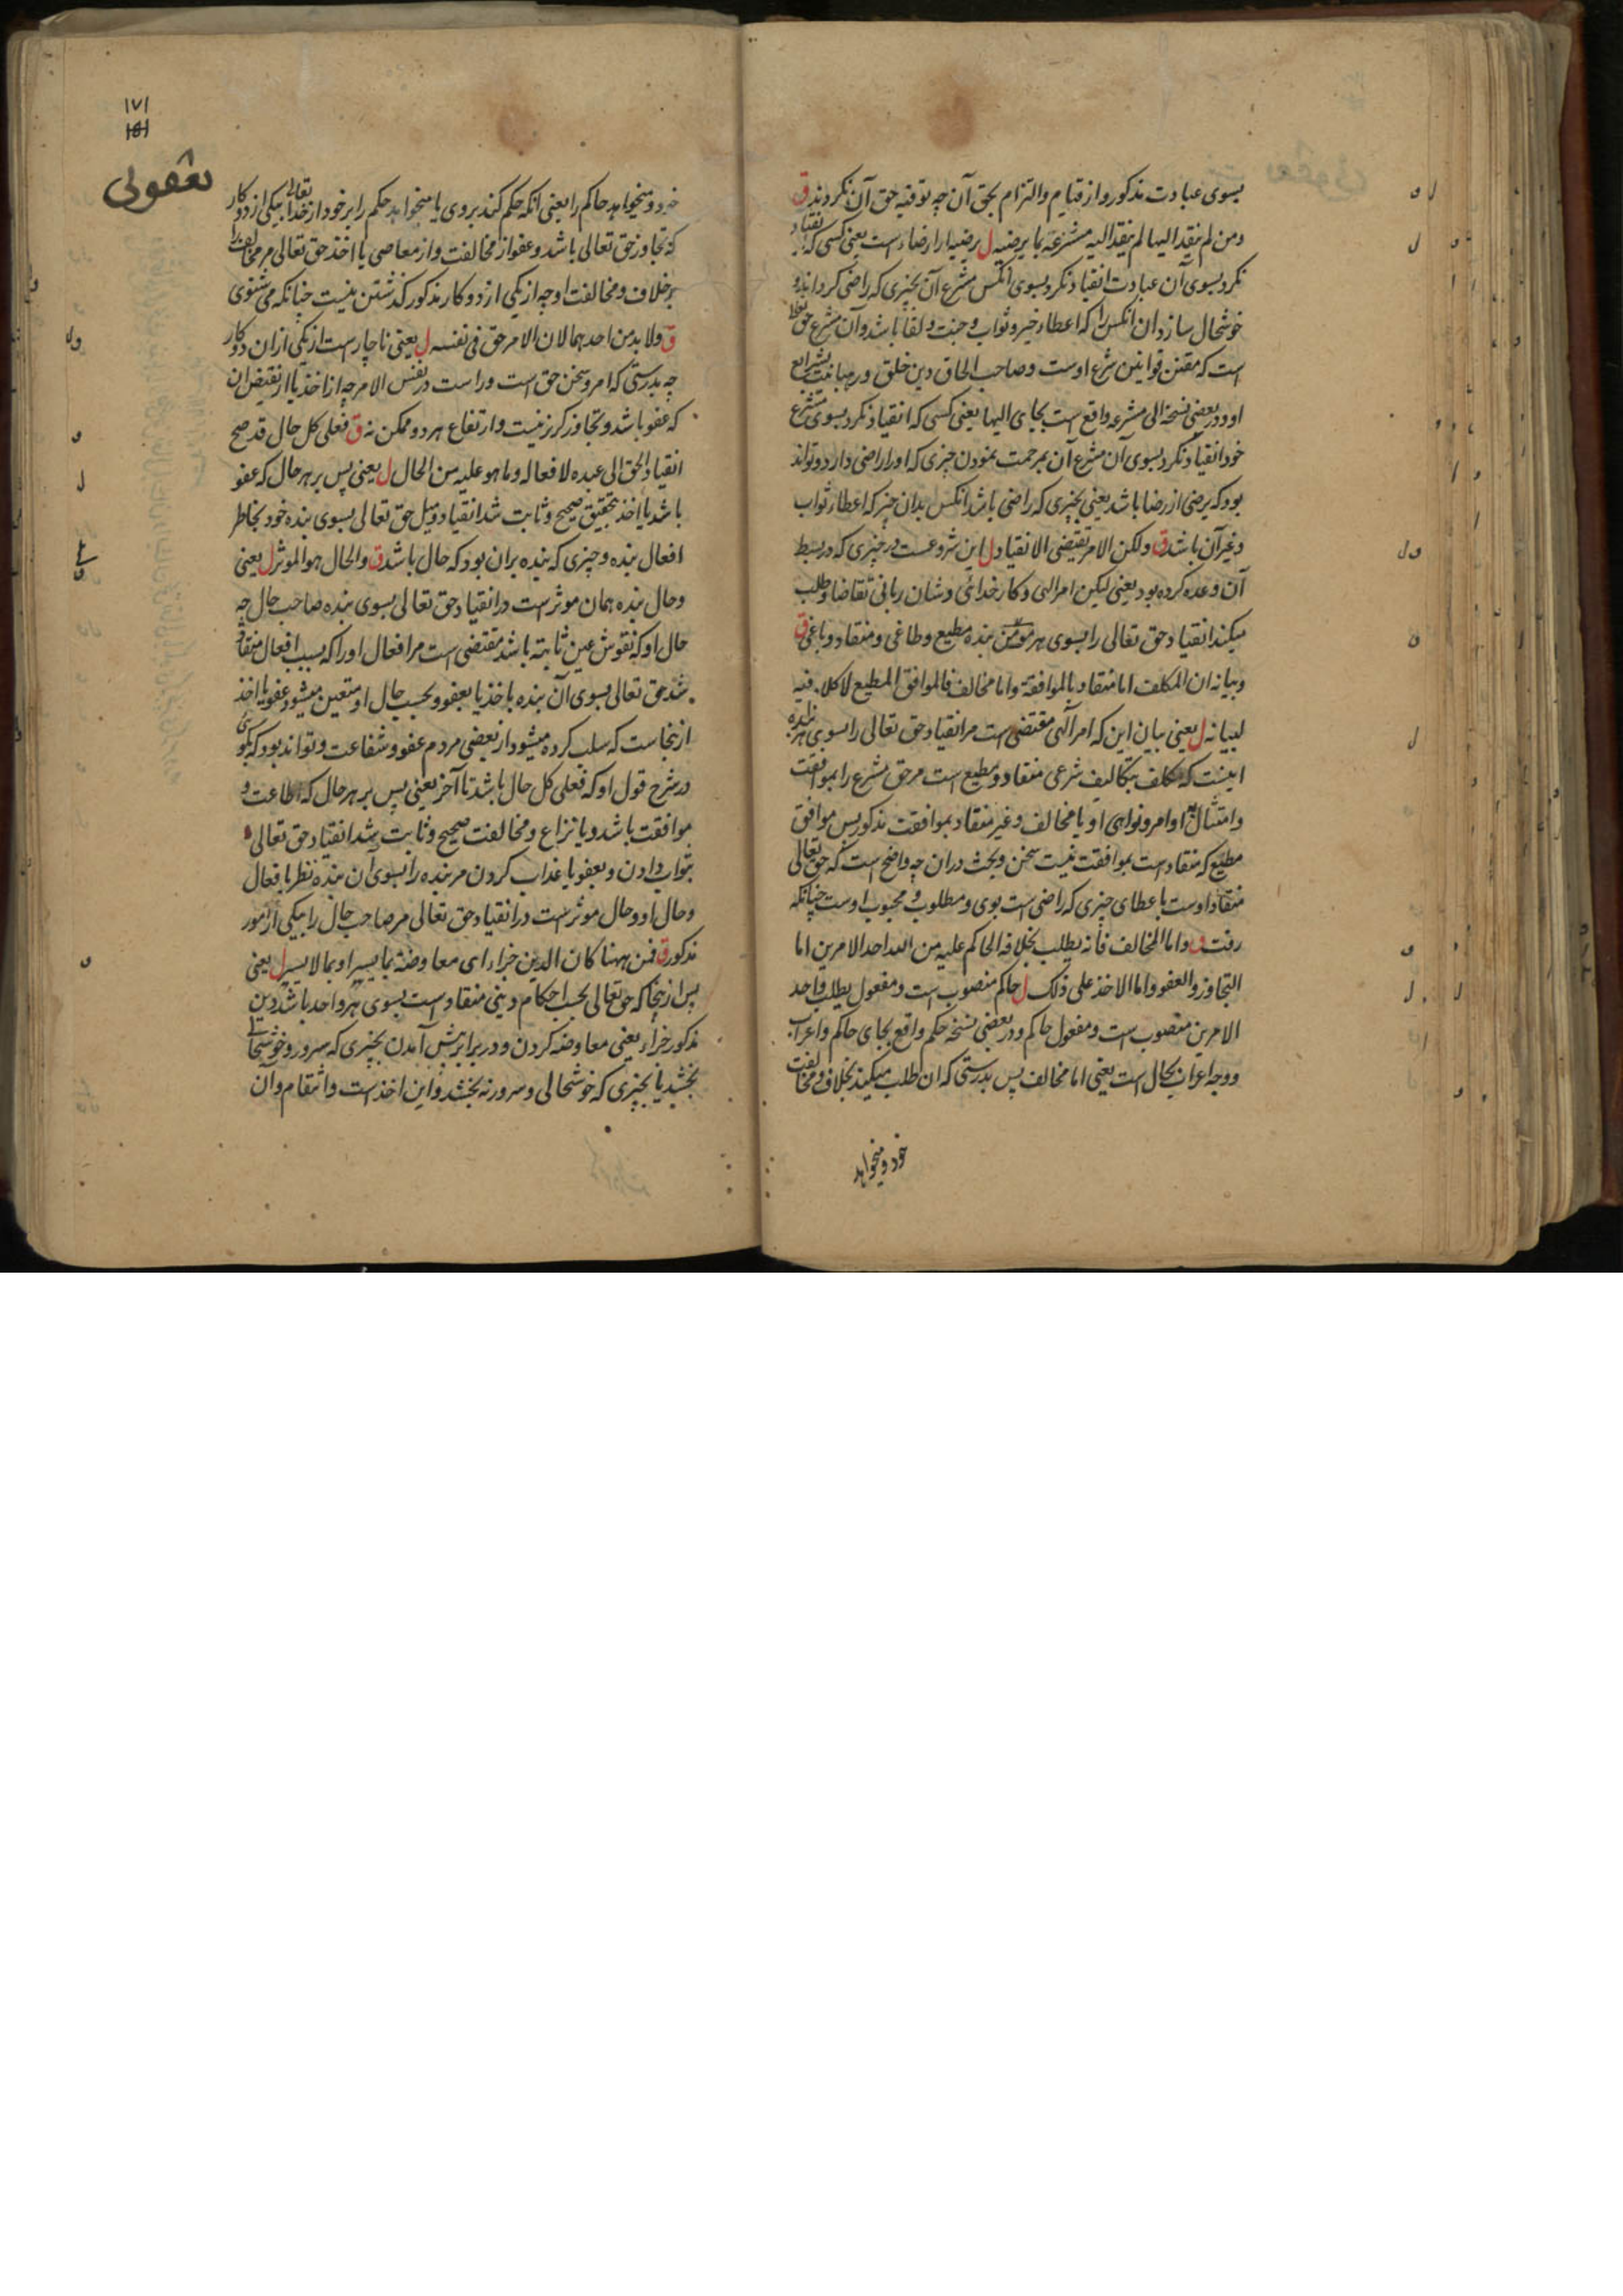 بسوی عبادت مذکور و از قیام و التزام بحق آن چه توفیه حق آن نکردند ق
ومن لم ینقد الیها لم ینقد الیه مشرعه بما یرضیه ل یرضیه از ارضاء است یعنی کسی که انقیاد
نکرد بسوی آن عبادت انقیاد نکرد بسوی آنکس مشرع آن بچیزی که راضی کرداند و
خوشحال سازد آن آنکس را که اعطاء خیر و ثواب و جنت و لقا باشد و آن مشرع حق
است که مقنن قوانین شرع اوست و صاحب الحاق دین خلق و رهبانیت بشرایع
او و در بعضی نسخ الی مشرعه واقع است بجای الیها یعنی کسی که انقیاد نکرد بسوی مشرع
خود انقیاد نکرد بسوی آن مشرع آن بمرحمت نمودن چیزی که او را راضی دارد و تواند
بود که یرضی از رضا باشد یعنی بچیزی که راضی باشد آنکس بدان چیز که اعطاء ثواب
و غیر آن باشد ق ولکن الامر یقتضی الانقیاد ل این شروعست در چیزی که در بسط
آن وعده کرده بود یعنی لیکن امر الهی و کار خدائی و شان ربانی تقاضا و طلب
میکند انقیاد حق تعالی را بسوی هر مومن بنده مطیع و طاغی و منقاد و باغی ق
وبیانه ان المکلف اما منقاد بالموافقة واما مخالف فالموافق المطیع لا کلام فیه
لبیانه ل یعنی بیان این که امر الهی مقتضی است مر انقیاد حق تعالی را بسوی هر بنده
اینست که مکلف بتکالیف شرعی منقاد و مطیع است مر حق مشرع را بموافقت
و امتثال اوامر و نواهی او یا مخالف و غیر منقاد بموافقت مذکور پس موافق
مطیع که منقاد است بموافقت نیست سخن و بحث در آن چه واضح است که حق تعالی
منقاد اوست باعطای چیزی که راضی است بوی و مطلوب و محبوب اوست چنانکه
رفت ق واما المخالف فانه یطلب بخلافه الحاکم علیه من الله احد الامرین اما
التجاوز والعفو واما الاخذ علی ذلک ل حاکم منصوب است و مفعول یطلب واحد
الامرین منصوب است و مفعول حاکم و در بعضی نسخه حکم واقع بجای حاکم و اعراب
و وجه اعراب بحال است یعنی اما مخالف پس بدرستی که آن طلب میکند بخلاف و مخالفت
خود و میخواهد
۱۷۱
۱۵۱
خود و میخواهد حاکم را یعنی آنکه حکم کند بروی یا میخواهد حکم را بر خود از خدا تعالی بیکی از دو کار
که تجاوز حق تعالی باشد و عفو از مخالفت و از معاصی یا اخذ حق تعالی مر مخالف را
بر خلاف و مخالفت او چه از یکی از دو کار مذکور گذشتن نیست چنانکه می شنوی
ق ولا بد من احدهما لان الامر حق فی نفسه ل یعنی ناچار است از یکی از آن دو کار
چه بدرستی که امر و سخن حق است و راست در نفس الامر چه از اخذ یا از نقیض آن
که عفو باشد و تجاوز گریز نیست و ارتفاع هر دو ممکن نه ق فعلی کل حال قد صح
انقیاد الحق الی عبده لافعاله وما هو علیه من الحال ل یعنی پس بر هر حال که عفو
باشد یا اخذ بتحقیق صحیح و ثابت شد انقیاد و میل حق تعالی بسوی بنده خود بخاطر
افعال بنده و چیزی که بنده بر آن بود که حال باشد ق والحال هو الموثر ل یعنی
و حال بنده همان موثر است در انقیاد حق تعالی بسوی بنده صاحب حال چه
حال او که نقوش عین ثابته باشد مقتضی است مر افعال او را که بسبب افعال منقاد
شد حق تعالی بسوی آن بنده باخذ یا بعفو و بحسب حال او متعین میشود عفو یا اخذ
از اینجاست که سلب کرده میشود از بعضی مردم عفو و شفاعت و تواند بود که بگوئی
در شرح قول او که فعلی کل حال باشد تا آخر یعنی پس بر هر حال که اطاعت و
موافقت باشد و یا نزاع و مخالفت صحیح و ثابت شد انقیاد حق تعالی
بثواب دادن و بعفو یا عذاب کردن مر بنده را بسوی آن بنده نظر بافعال
و حال او و حال موثر است در انقیاد حق تعالی مر صاحب حال را بیکی از امور
مذکور ق فمن ههنا کان الدین جزاء ای معاوضة بما یسر او بما لا یسر ل یعنی
پس از اینجا که حق تعالی بحسب احکام دینی منقاد است بسوی هر واحد باشد دین
مذکور جزاء یعنی معاوضه کردن و در برابرش آمدن بچیزی که سرور و خوشحالی
بخشد یا بچیزی که خوشحالی و سرور نه بخشد و این اخذ است و انتقام و آن